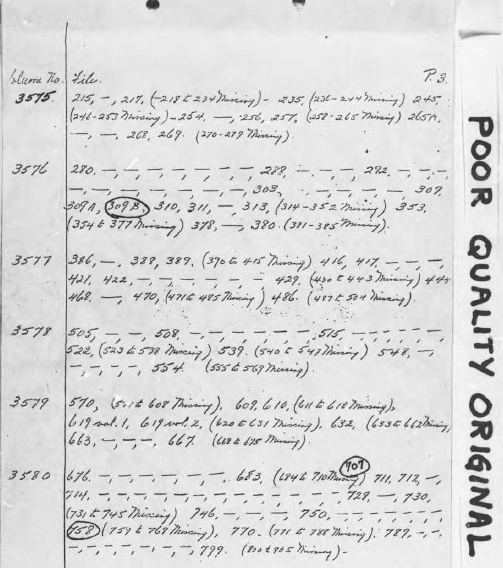 Volume No. File. P. 3.
3575 215, –, 217, (–218 to 234 Missing) – 235, (236–244 Missing) 245,
(246–253 Missing) – 254, –, 256, 257, (258–265 Missing) 265A,
–, –, 268, 269. (270–279 Missing)
3576 280, –, –, –, –, –, –, –, 288, –, –, –, 292, –, –, –,
–, –, –, –, –, –, –, 303, –, –, –, –, –, 309,
309A, 309B, 310, 311, –, 313, (314–352 Missing) 353,
(354 to 377 Missing) 378, –, 380. (381–385 Missing).
3577 386, –, 388, 389, (390 to 415 Missing) 416, 417, –, –, –,
421, 422, –, –, –, –, –, –, 429, (430 to 443 Missing) 444
468, –, 470, (471 to 485 Missing) 486. (487 to 504 Missing).
3578 505, –, –, 508, –, –, –, –, –, –, 515, –, –, –, –, –, –,
522, (523 to 538 Missing) 539. (540 to 547 Missing) 548, –,
–, –, –, –, 554. (555 to 569 Missing).
3579 570, (571 to 608 Missing), 609, 610, (611 to 618 Missing),
619 vol. 1, 619 vol. 2, (620 to 631 Missing), 632, (633 to 662 Missing)
663, –, –, –, 667. (668 to 675 Missing).
707
3580 676, –, –, –, –, –, –, 683, (684 to 710 Missing) 711, 712, –,
714, –, –, –, –, –, –, –, –, –, –, –, –, –, 728, –, 730,
(731 to 745 Missing) 746, –, –, –, 750, –, –, –, –, –, –, –,
758 (759 to 769 Missing), 770. (771 to 788 Missing). 789, –, –,
–, –, –, –, –, –, –, 799. (800 to 805 Missing) –
POOR QUALITY ORIGINAL